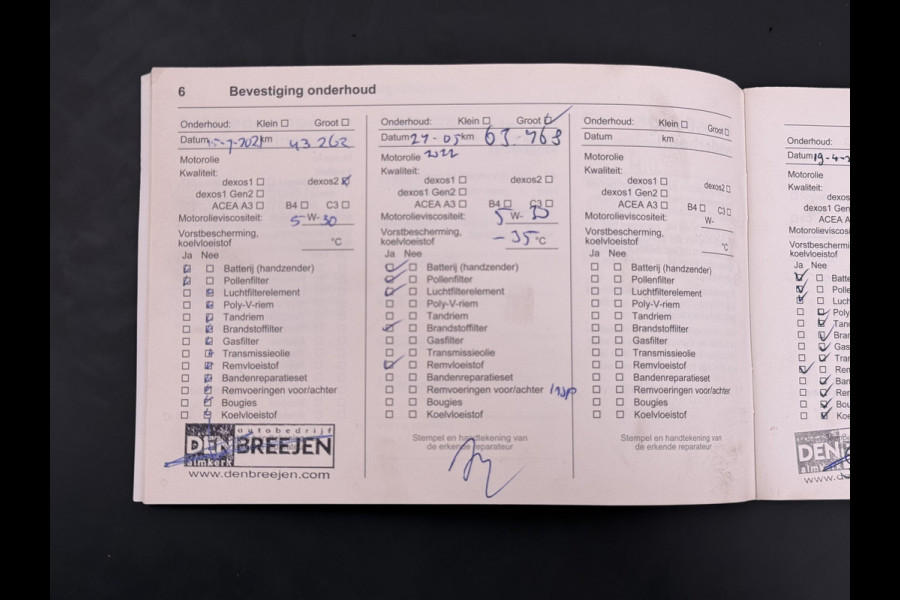 6 Bevestiging onderhoud
Onderhoud: Klein ☐ Groot ☐
Datum km 43 262
Motorolie
Kwaliteit:
dexos1 ☐ dexos2 ☑
dexos1 Gen2 ☐
ACEA A3 ☐ B4 ☐ C3 ☐
Motorolieviscositeit: 5 W- 30
Vorstbescherming,
koelvloeistof °C
Ja Nee
☑ ☐ Batterij (handzender)
☑ ☐ Pollenfilter
☐ ☑ Luchtfilterelement
☐ ☑ Poly-V-riem
☐ ☑ Tandriem
☐ ☑ Brandstoffilter
☐ ☑ Gasfilter
☐ ☑ Transmissieolie
☐ ☑ Remvloeistof
☐ ☑ Bandenreparatieset
☐ ☑ Remvoeringen voor/achter
☐ ☑ Bougies
☐ ☑ Koelvloeistof
autobedrijf
DEN BREEJEN
almkerk
www.denbreejen.com
Onderhoud: Klein ☐ Groot ☑
Datum 27-05 km 63-768
Motorolie 2022
Kwaliteit:
dexos1 ☐ dexos2 ☐
dexos1 Gen2 ☐
ACEA A3 ☐ B4 ☐ C3 ☐
Motorolieviscositeit: 5 W- 30
Vorstbescherming,
koelvloeistof -35 °C
Ja Nee
☑ ☐ Batterij (handzender)
☑ ☐ Pollenfilter
☑ ☐ Luchtfilterelement
☐ ☐ Poly-V-riem
☐ ☐ Tandriem
☑ ☐ Brandstoffilter
☐ ☐ Gasfilter
☐ ☐ Transmissieolie
☑ ☐ Remvloeistof
☐ ☐ Bandenreparatieset
☐ ☐ Remvoeringen voor/achter
☐ ☐ Bougies
☐ ☐ Koelvloeistof
Stempel en handtekening van
de erkende reparateur
Onderhoud: Klein ☐ Groot ☐
Datum km
Motorolie
Kwaliteit:
dexos1 ☐ dexos2 ☐
dexos1 Gen2 ☐
ACEA A3 ☐ B4 ☐ C3 ☐
Motorolieviscositeit: W-
Vorstbescherming,
koelvloeistof °C
Ja Nee
☐ ☐ Batterij (handzender)
☐ ☐ Pollenfilter
☐ ☐ Luchtfilterelement
☐ ☐ Poly-V-riem
☐ ☐ Tandriem
☐ ☐ Brandstoffilter
☐ ☐ Gasfilter
☐ ☐ Transmissieolie
☐ ☐ Remvloeistof
☐ ☐ Bandenreparatieset
☐ ☐ Remvoeringen voor/achter
☐ ☐ Bougies
☐ ☐ Koelvloeistof
Stempel en handtekening van
de erkende reparateur
Onderhoud:
Datum 19-4-2
Motorolie
Kwaliteit:
dexos
dexos1
ACEA A
Motorolieviscosi
Vorstbescherming
koelvloeistof
Ja Nee
☑ ☐ Batte
☑ ☐ Polle
☑ ☐ Luch
☐ ☑ Poly
☐ ☑ Tan
☐ ☑ Bra
☐ ☑ Gas
☐ ☑ Tra
☑ ☐ Ren
☐ ☑ Ban
☐ ☑ Ren
☐ ☑ Bou
☐ ☑ Koe
DEN
almk
www.d